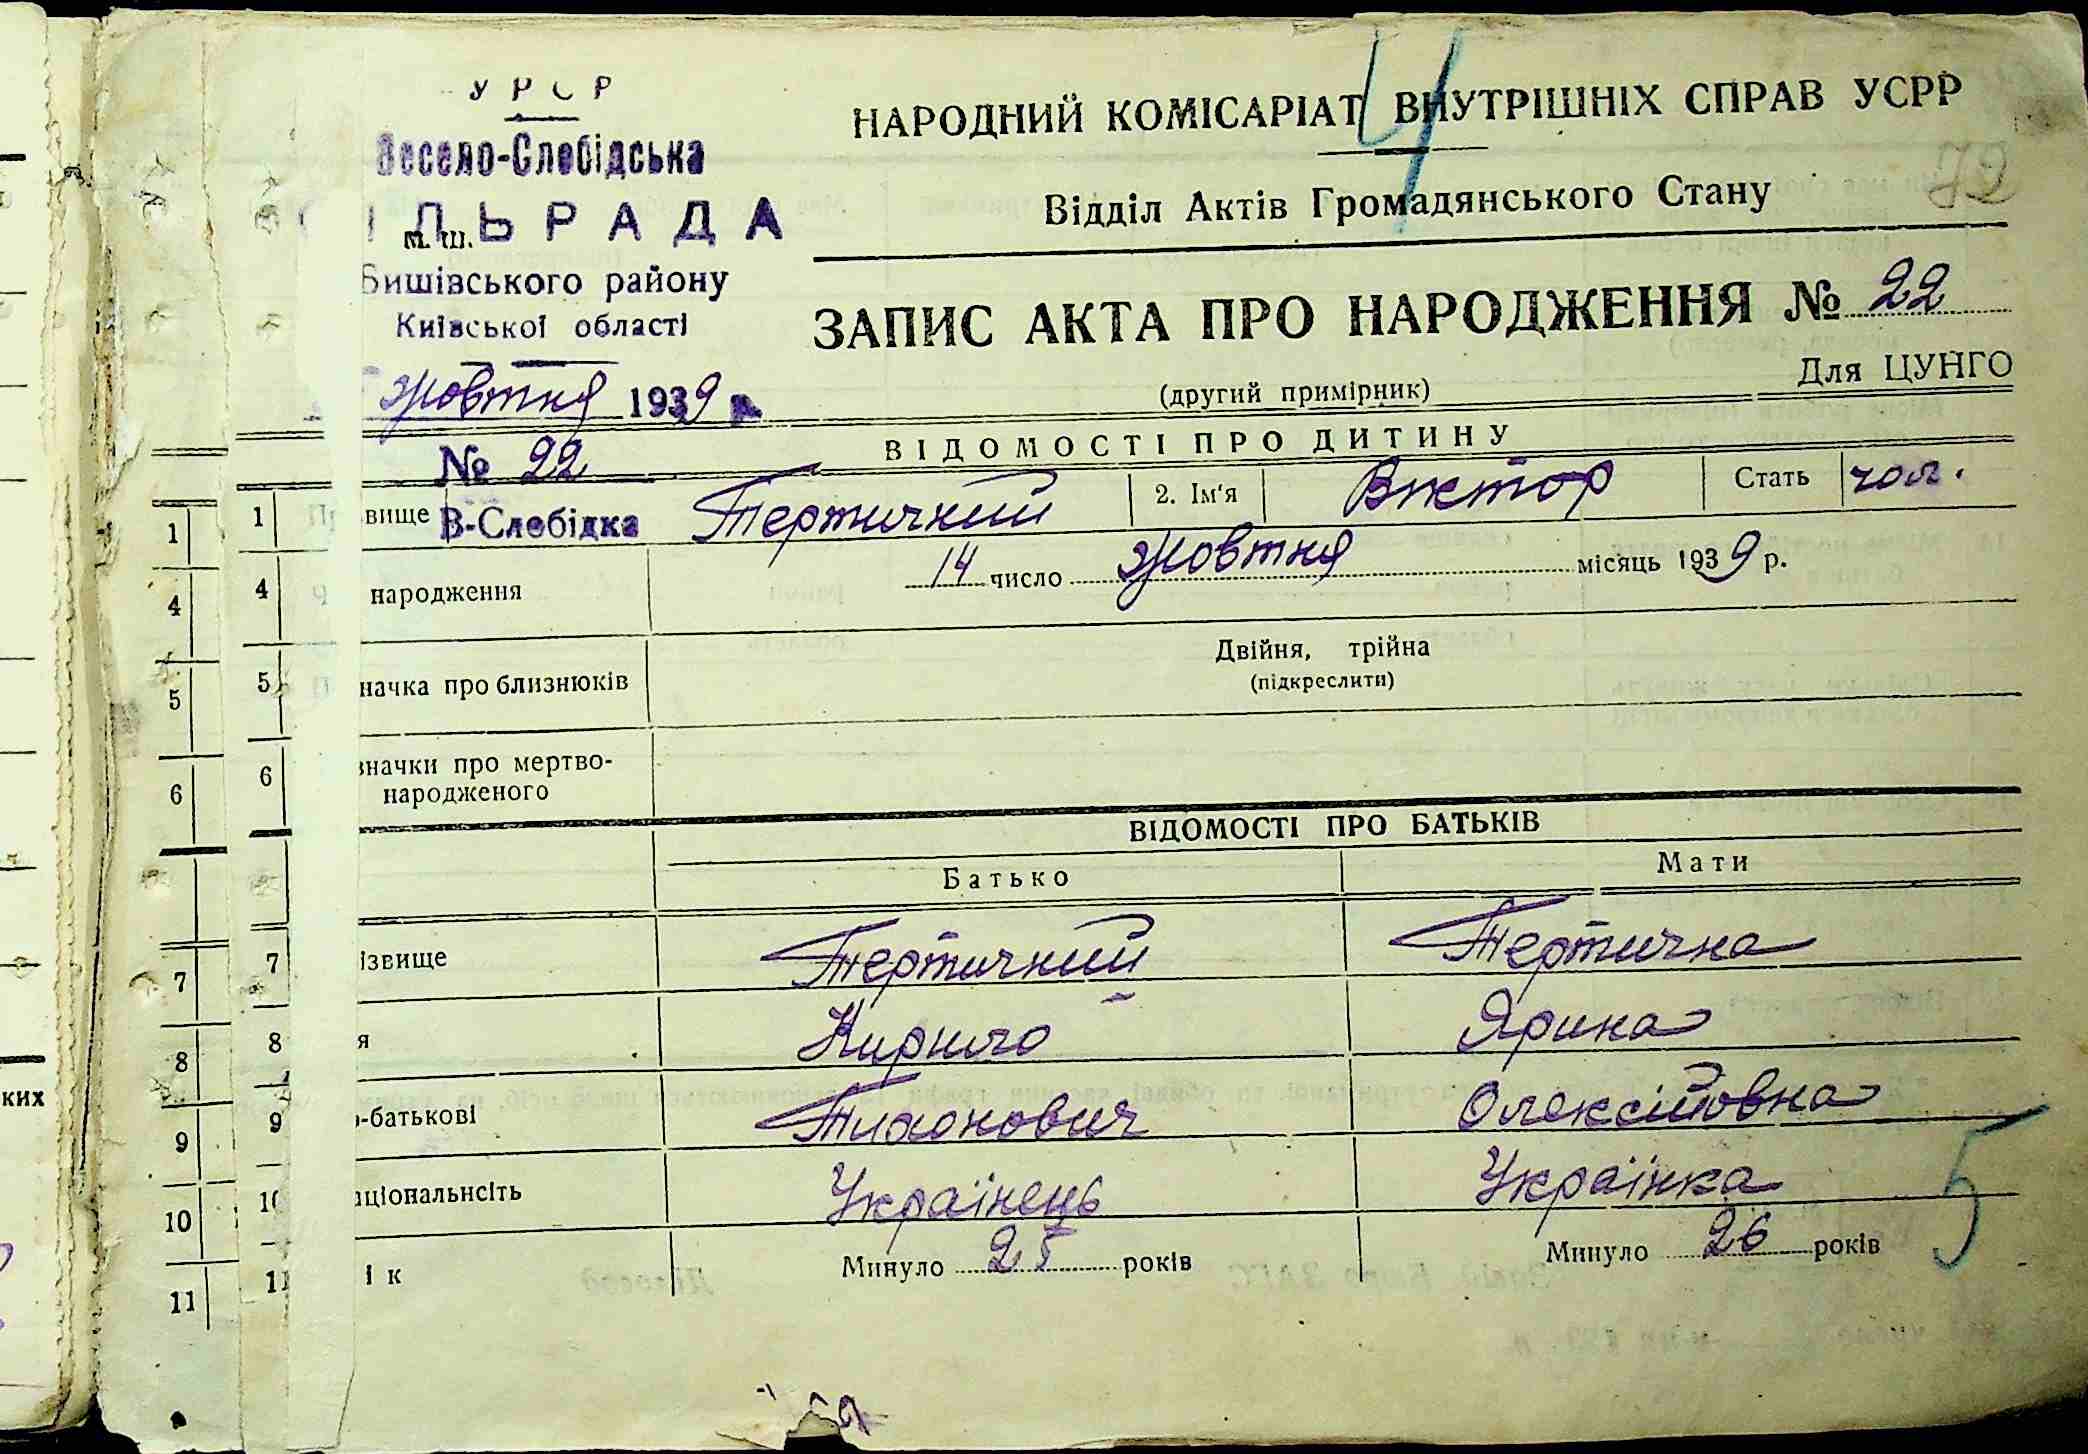 УРСР
Весело-Слобідська
ІЛЬРАДА
м. ш.
Бишівського району
Київської області
жовтня 1939 р.
№ 22
В-Слобідка
НАРОДНИЙ КОМІСАРІАТ ВНУТРІШНІХ СПРАВ УСРР
4
72
Відділ Актів Громадянського Стану
ЗАПИС АКТА ПРО НАРОДЖЕННЯ № 22
(другий примірник)
Для ЦУНГО
ВІДОМОСТІ ПРО ДИТИНУ
1 1 вище Тертичний 2. Ім'я Віктор Стать чол.
4 4 народження 14 число жовтня місяць 1939 р.
5 5 начка про близнюків Двійня, трійна
(підкреслити)
6 6 значки про мертво-
народженого
ВІДОМОСТІ ПРО БАТЬКІВ
Батько Мати
7 7 ізвище Тертичний Тертична
8 8 я Кирило Ярина
9 9 о-батькові Тихонович Олексіївна
10 10 аціональнсіть Українець Українка
5
11 11 ік Минуло 25 років Минуло 26 років
ких